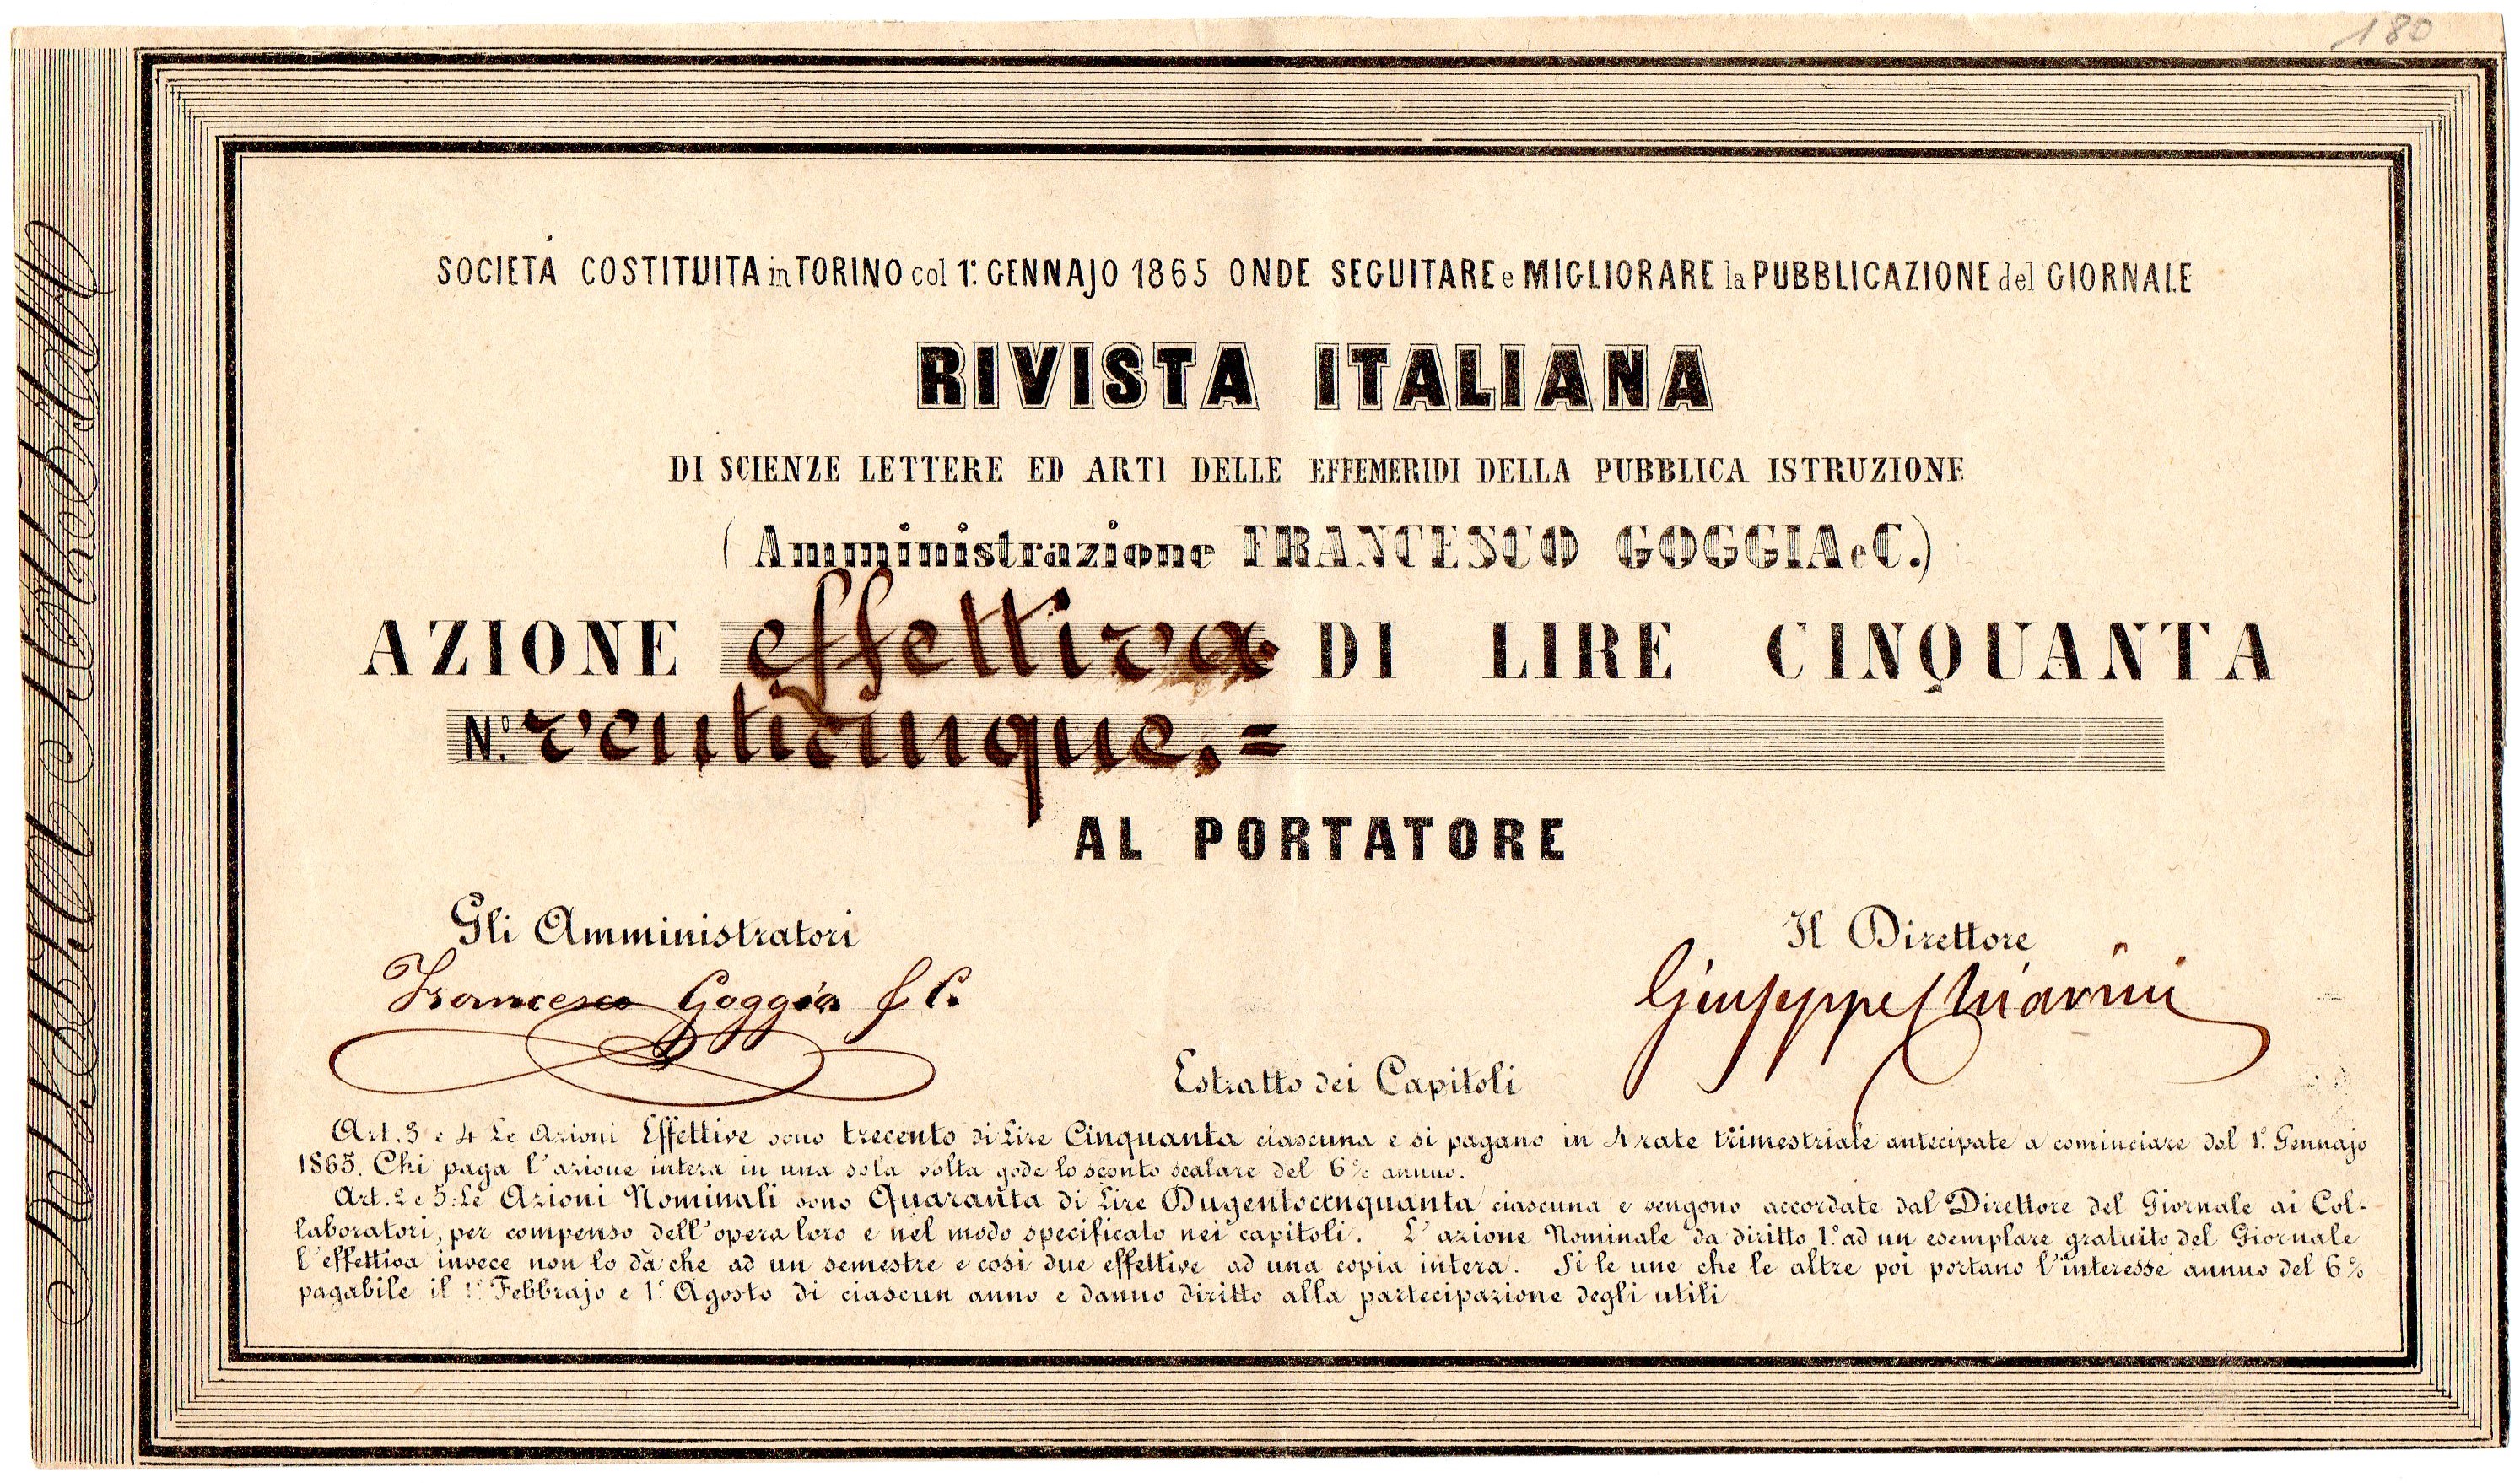 180
SOCIETÀ COSTITUITA in TORINO col 1º. GENNAJO 1865 ONDE SEGUITARE e MIGLIORARE la PUBBLICAZIONE del GIORNALE
RIVISTA ITALIANA
DI SCIENZE LETTERE ED ARTI DELLE EFFEMERIDI DELLA PUBBLICA ISTRUZIONE
(Amministrazione FRANCESCO GOGGIA e C.)
AZIONE effettiva. DI LIRE CINQUANTA
N.º venticinque. =
AL PORTATORE
Gli Amministratori
Il Direttore
Francesco Goggia f C.
Giuseppe Chiarini
Estratto dei Capitoli
Art. 3 e 4 Le Azioni Effettive sono trecento di Lire Cinquanta ciascuna e si pagano in 4 rate trimestriale antecipate a cominciare dal 1º. Gennajo
1865. Chi paga l'azione intera in una sola volta gode lo sconto scalare del 6% annuo.
Art. 2 e 5: Le Azioni Nominali sono Quaranta di Lire Dugentocenquanta ciascuna e vengono accordate dal Direttore del Giornale ai Col-
laboratori, per compenso dell'opera loro e nel modo specificato nei capitoli. L'azione Nominale da diritto 1º. ad un esemplare gratuito del Giornale
l'effettiva invece non lo dà che ad un semestre e così due effettive ad una copia intera. Si le une che le altre poi portano l'interesse annuo del 6%
pagabile il 1º. Febbrajo e 1º. Agosto di ciascun anno e danno diritto alla partecipazione degli utili